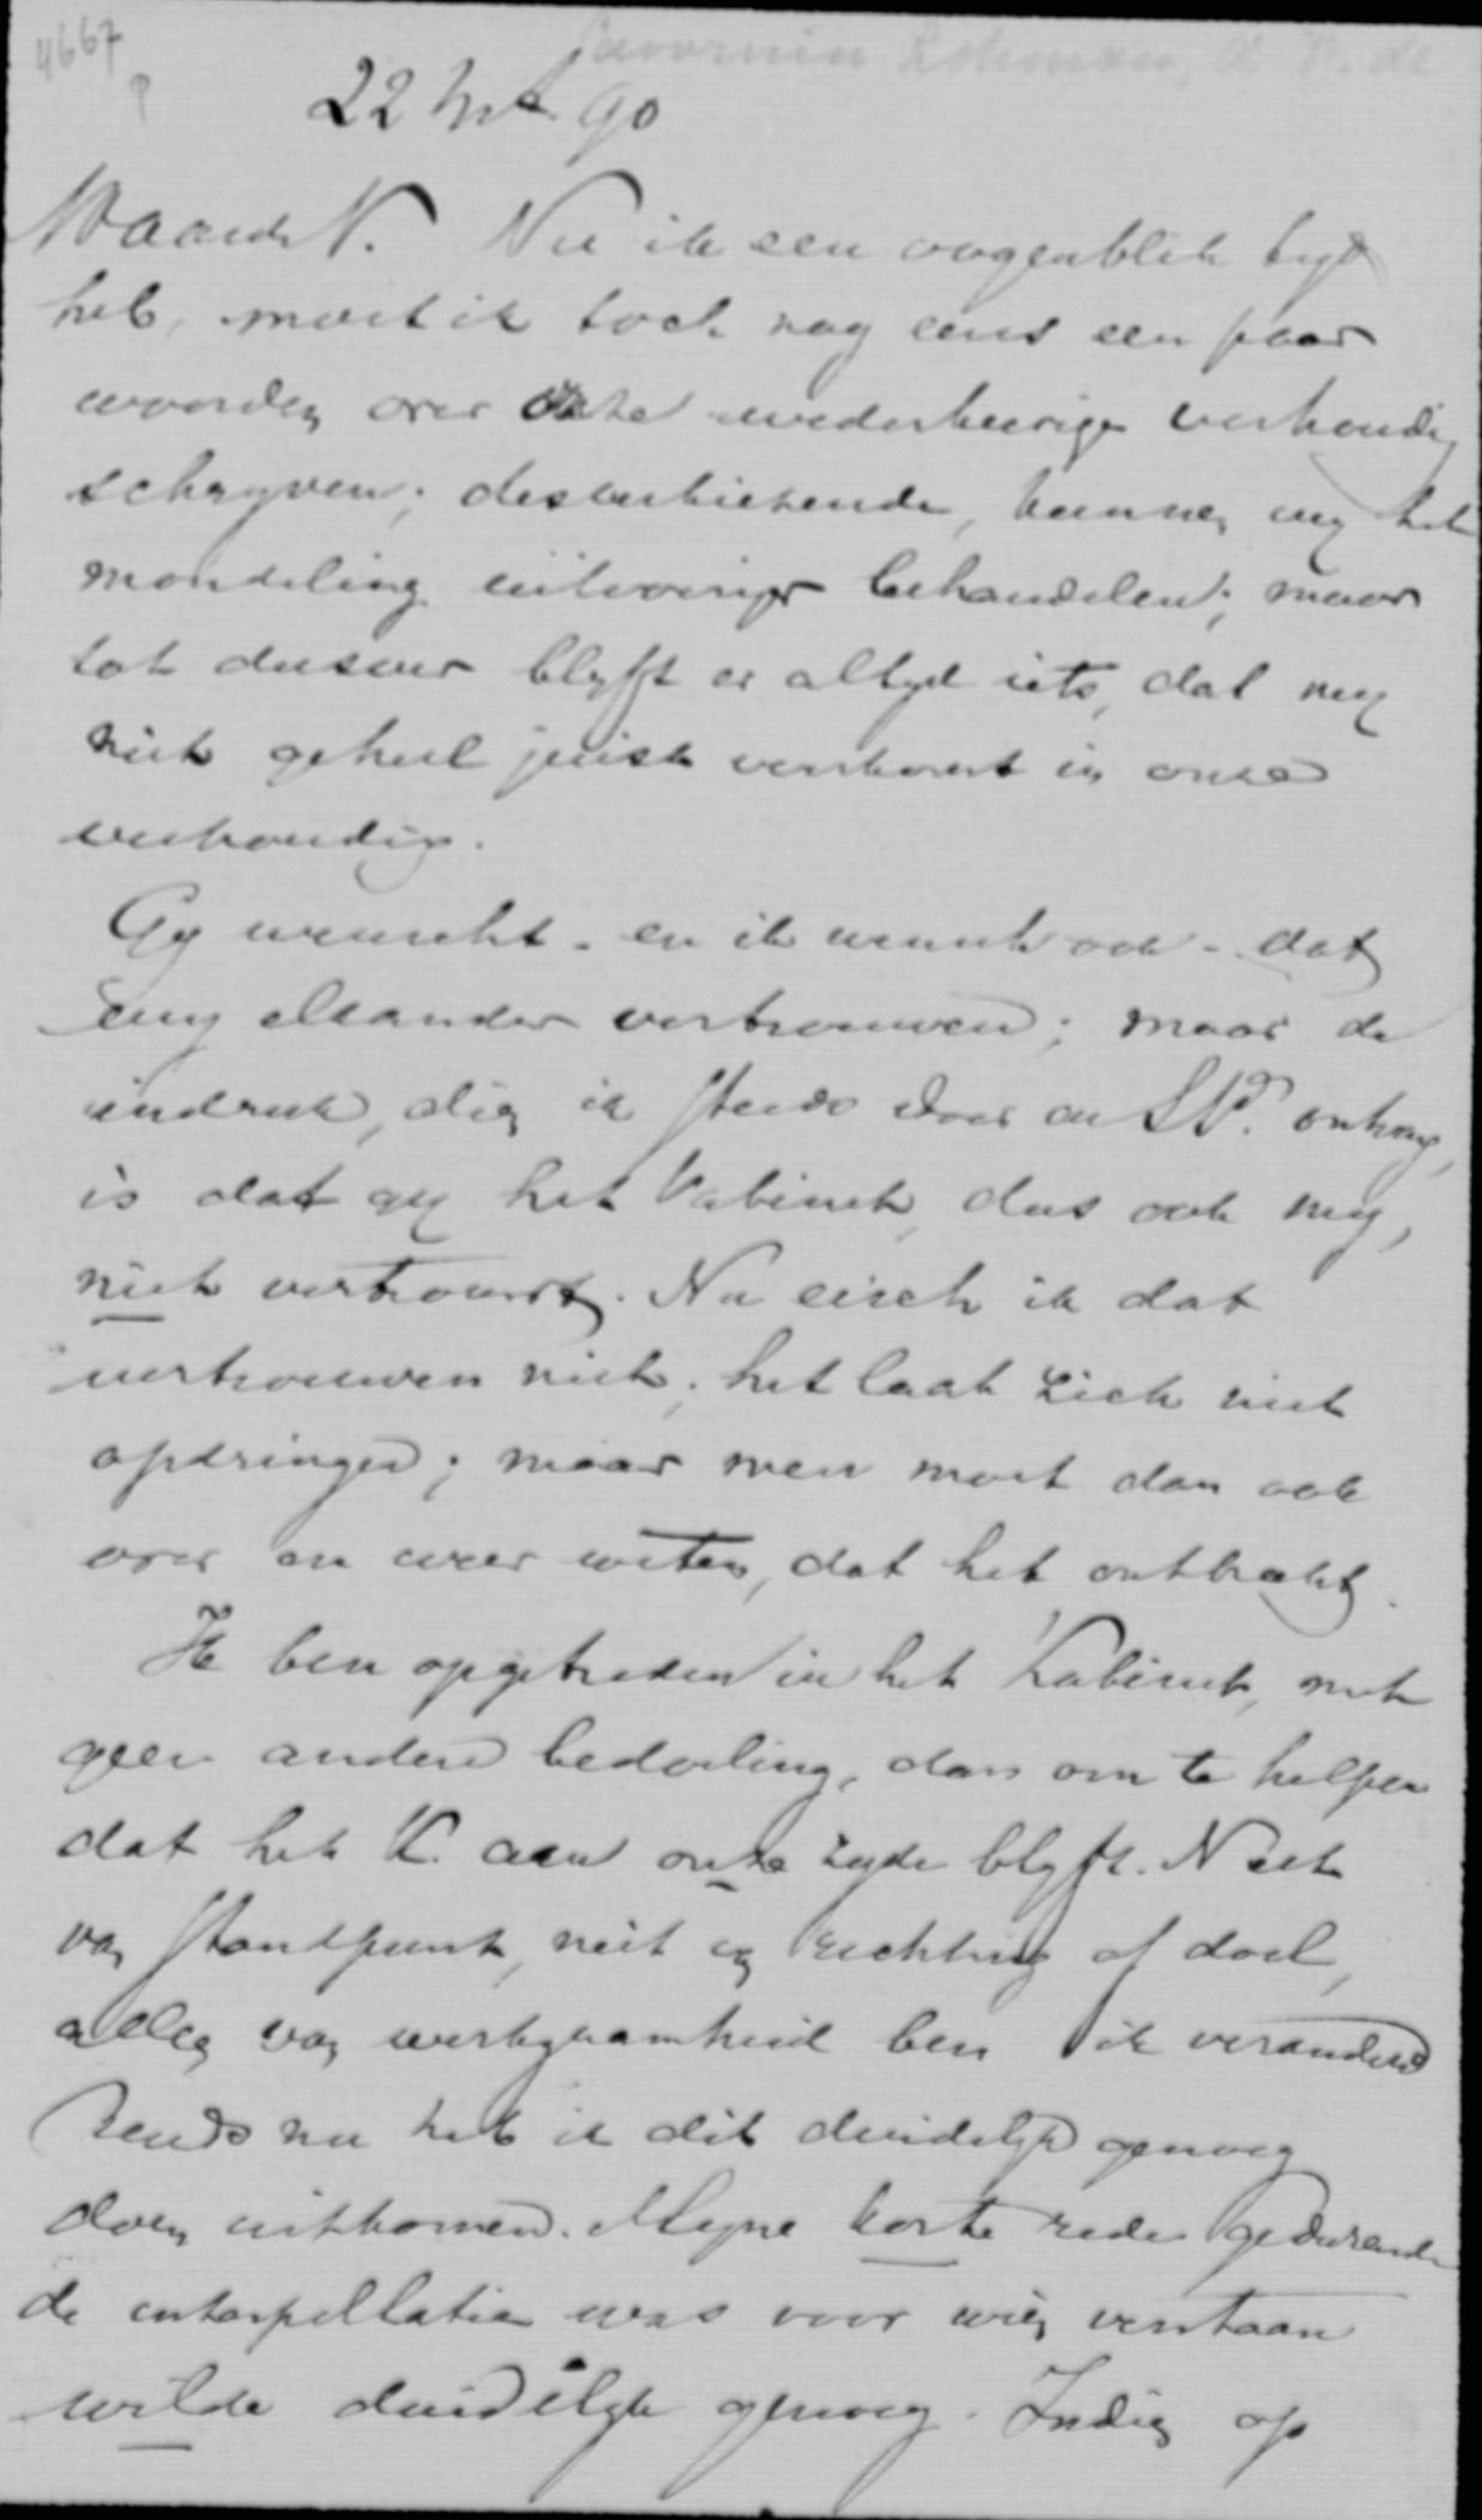 4667
Savornin Lohman, A. F. de
22 Mrt 90
Waarde N. Nu ik een oogenblik tyd
heb, moet ik toch nog eens een paar
woorden over onze wederkeerige verhouding
schryven; desverkiezende, kunnen wy het
mondeling uitvoeriger behandelen; maar
tot dusver blyft er altyd iets, dat my
niet geheel juist voorkomt in onze
verhouding.
Gy wenscht - en ik wensch ook - dat
wy elkander vertrouwen; maar de
indruk, dien ik steeds door de St. ontvang,
is dat gy het Kabinet, dus ook my,
niet vertrouwt. Nu eisch ik dat
vertrouwen niet; het laat zich niet
opdringen; maar men moet dan ook
over en weer weten, dat het ontbreekt.
Ik ben opgetreden in het Kabinet, met
geen andere bedoeling, dan om te helpen
dat het K. aan onze zyde blyft. Niet
van standpunt, niet van richting of doel,
alleen van werkzaamheid ben ik veranderd
Reeds nu heb ik dit duidelyk genoeg
doen uitkomen. Myne korte rede gedurende
de interpellatie was voor wien verstaan
wilde duidelyk genoeg. Indien op